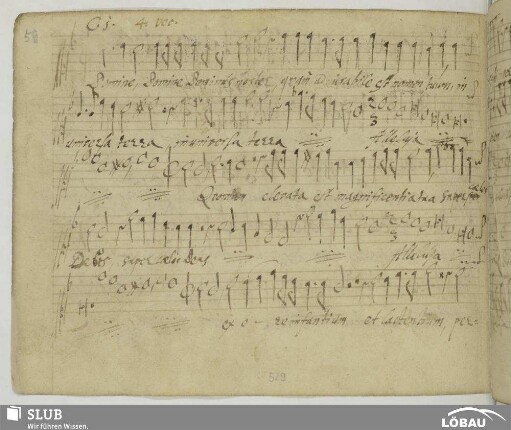 58 G 5. 4 voc.
Domine, Domine Dominus noster quam admirabile est nomen tuum, in
universa terra in universa terra Alleluja
Quoniam elevata est magnificentia tua super
Deus super caelos Alleluja
ex o- re infantium et lactentium, per-
519
SLUB
Wir führen Wissen.
LÖBAU